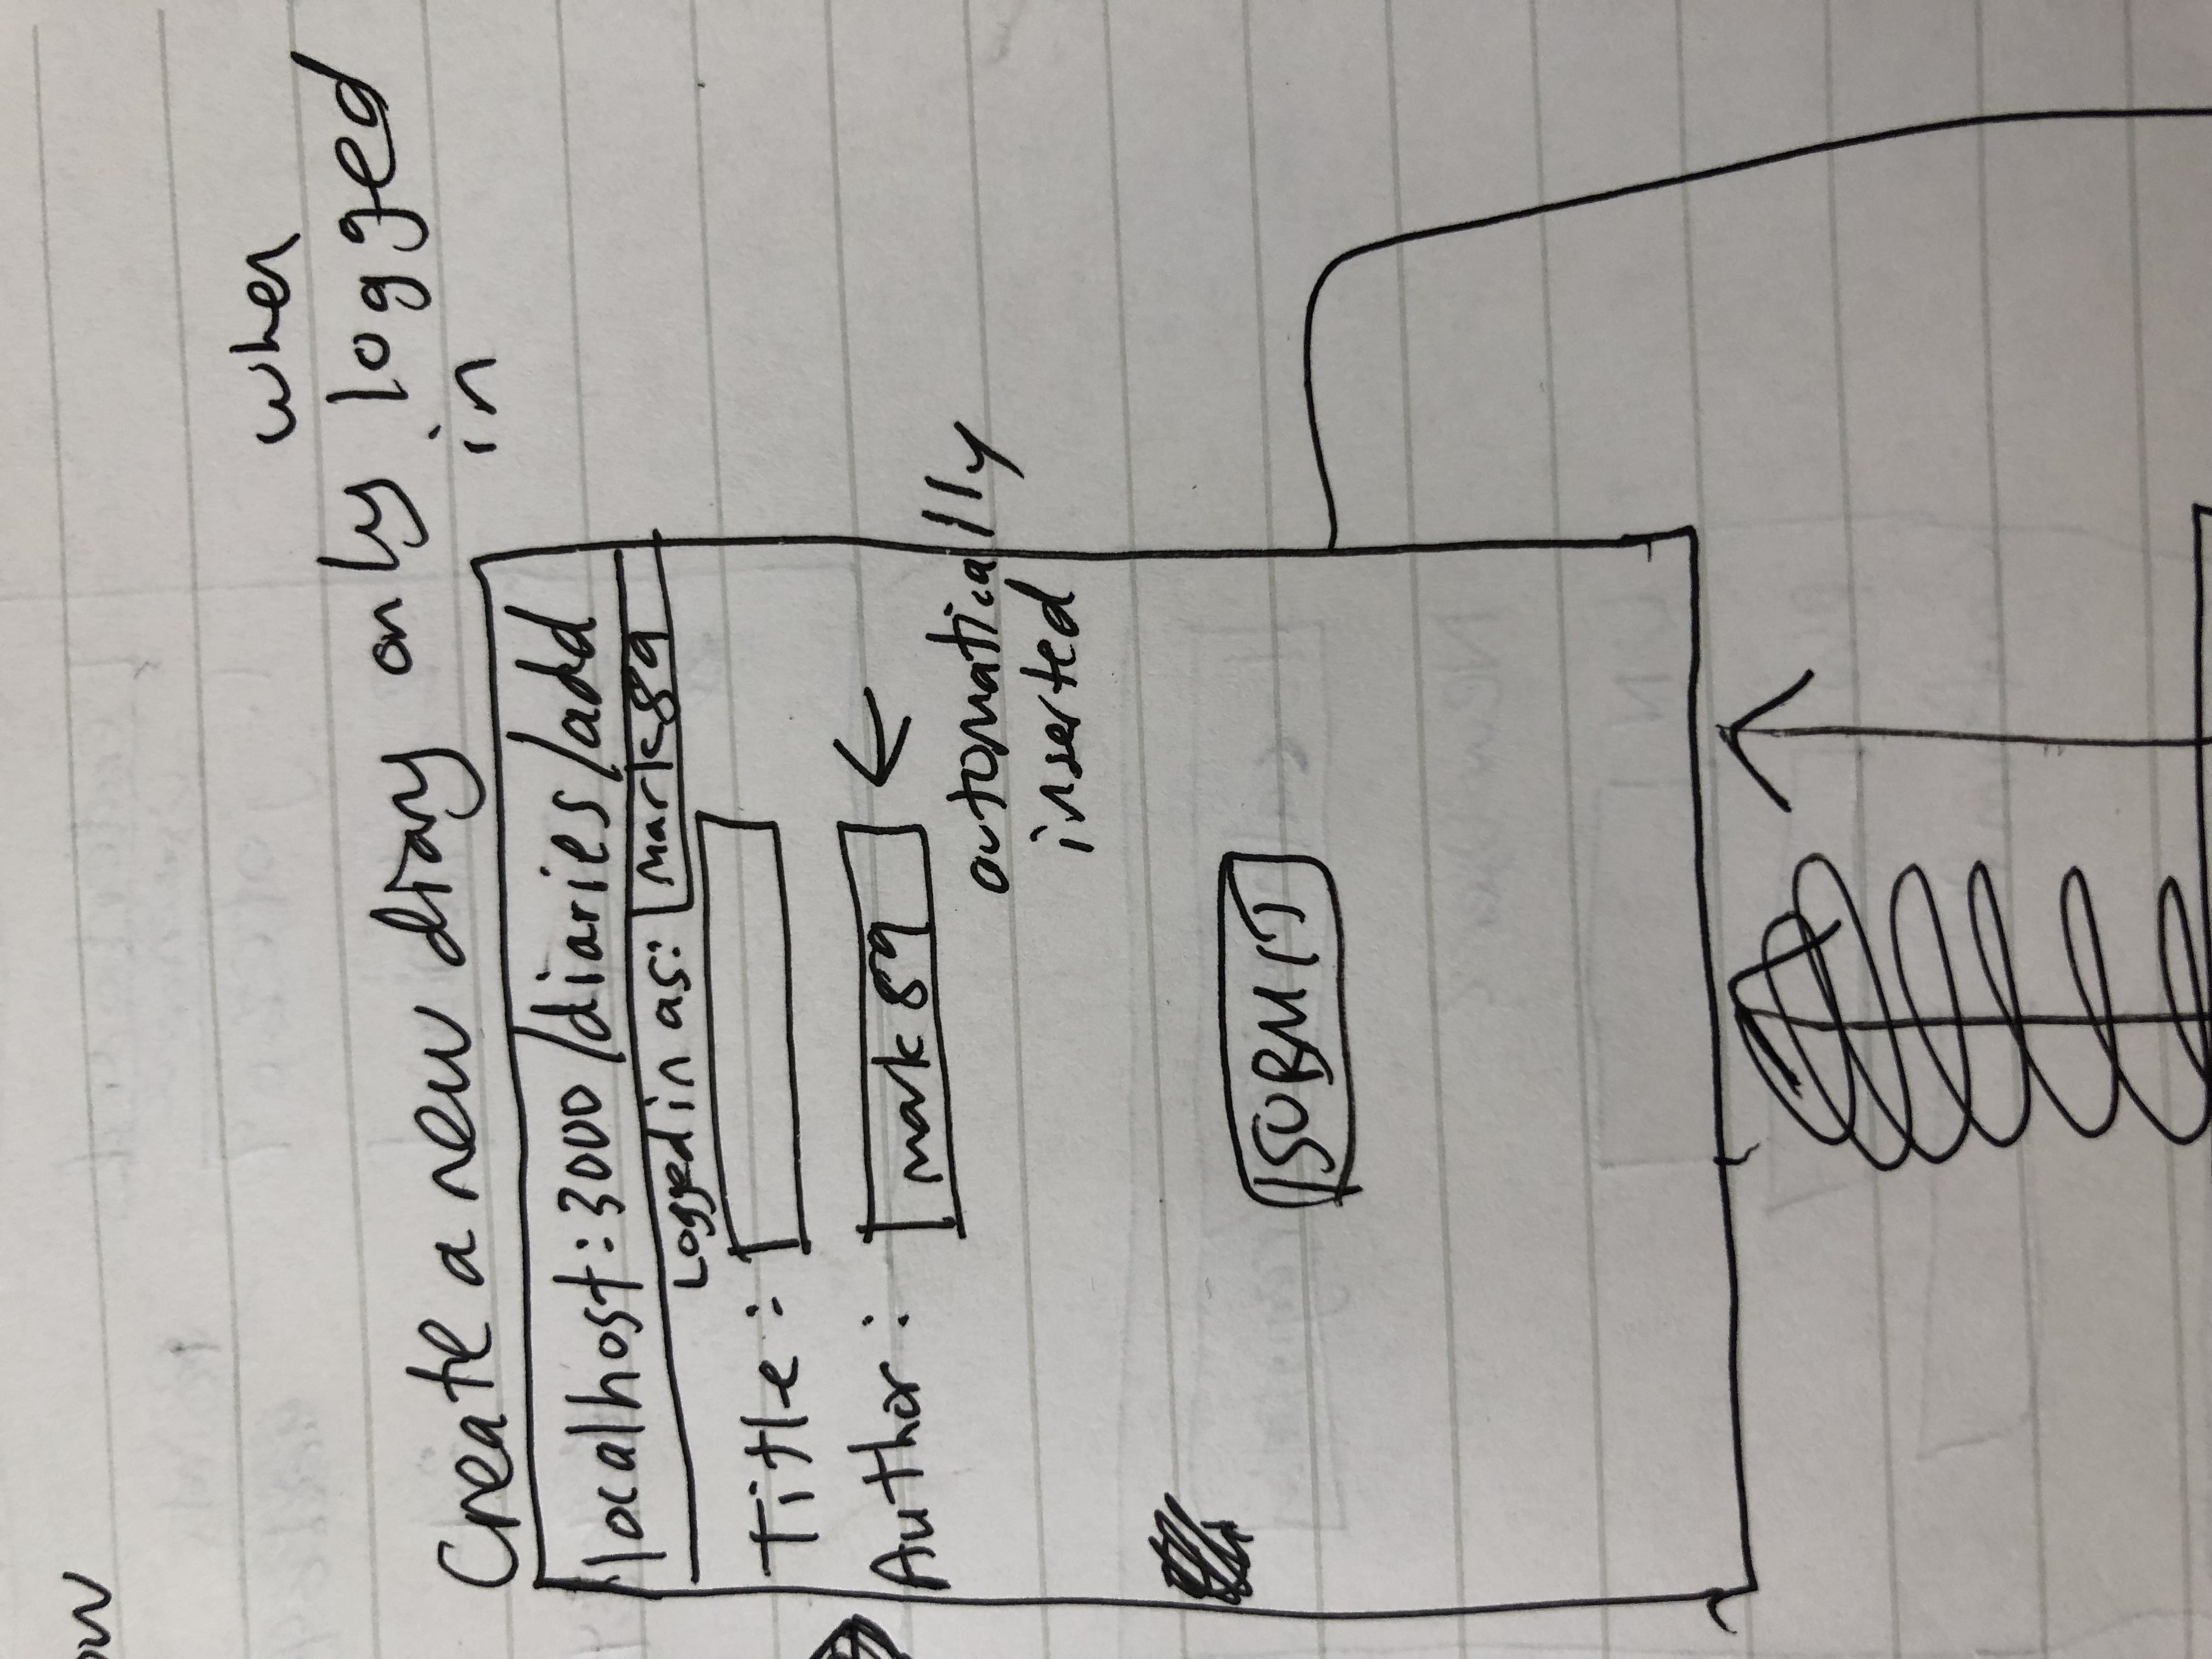 ow
when
Create a new diary only logged
in
localhost:3000/diaries/add
Logged in as: mark89
Title:
Author: mark89
automatically
inserted
SUBMIT